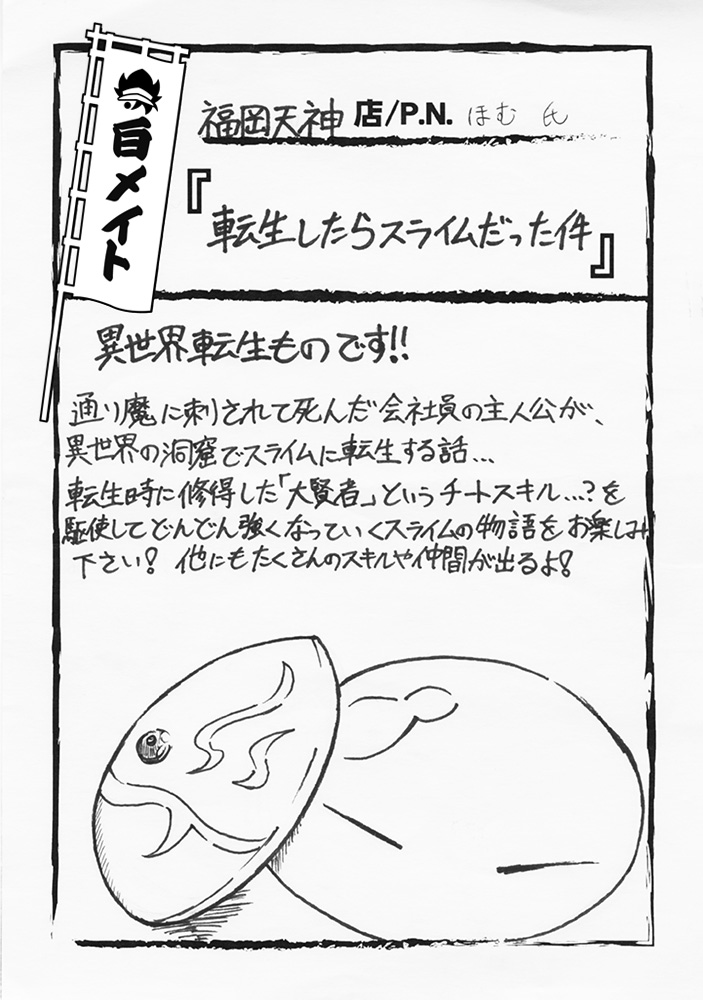 百メイト
福岡天神 店/P.N. ほむ 氏
『転生したらスライムだった件』
異世界転生ものです!!
通り魔に刺されて死んだ会社員の主人公が、
異世界の洞窟でスライムに転生する話...
転生時に修得した「大賢者」というチートスキル...?を
駆使してどんどん強くなっていくスライムの物語をお楽しみ
下さい! 他にもたくさんのスキルや仲間が出るよ!